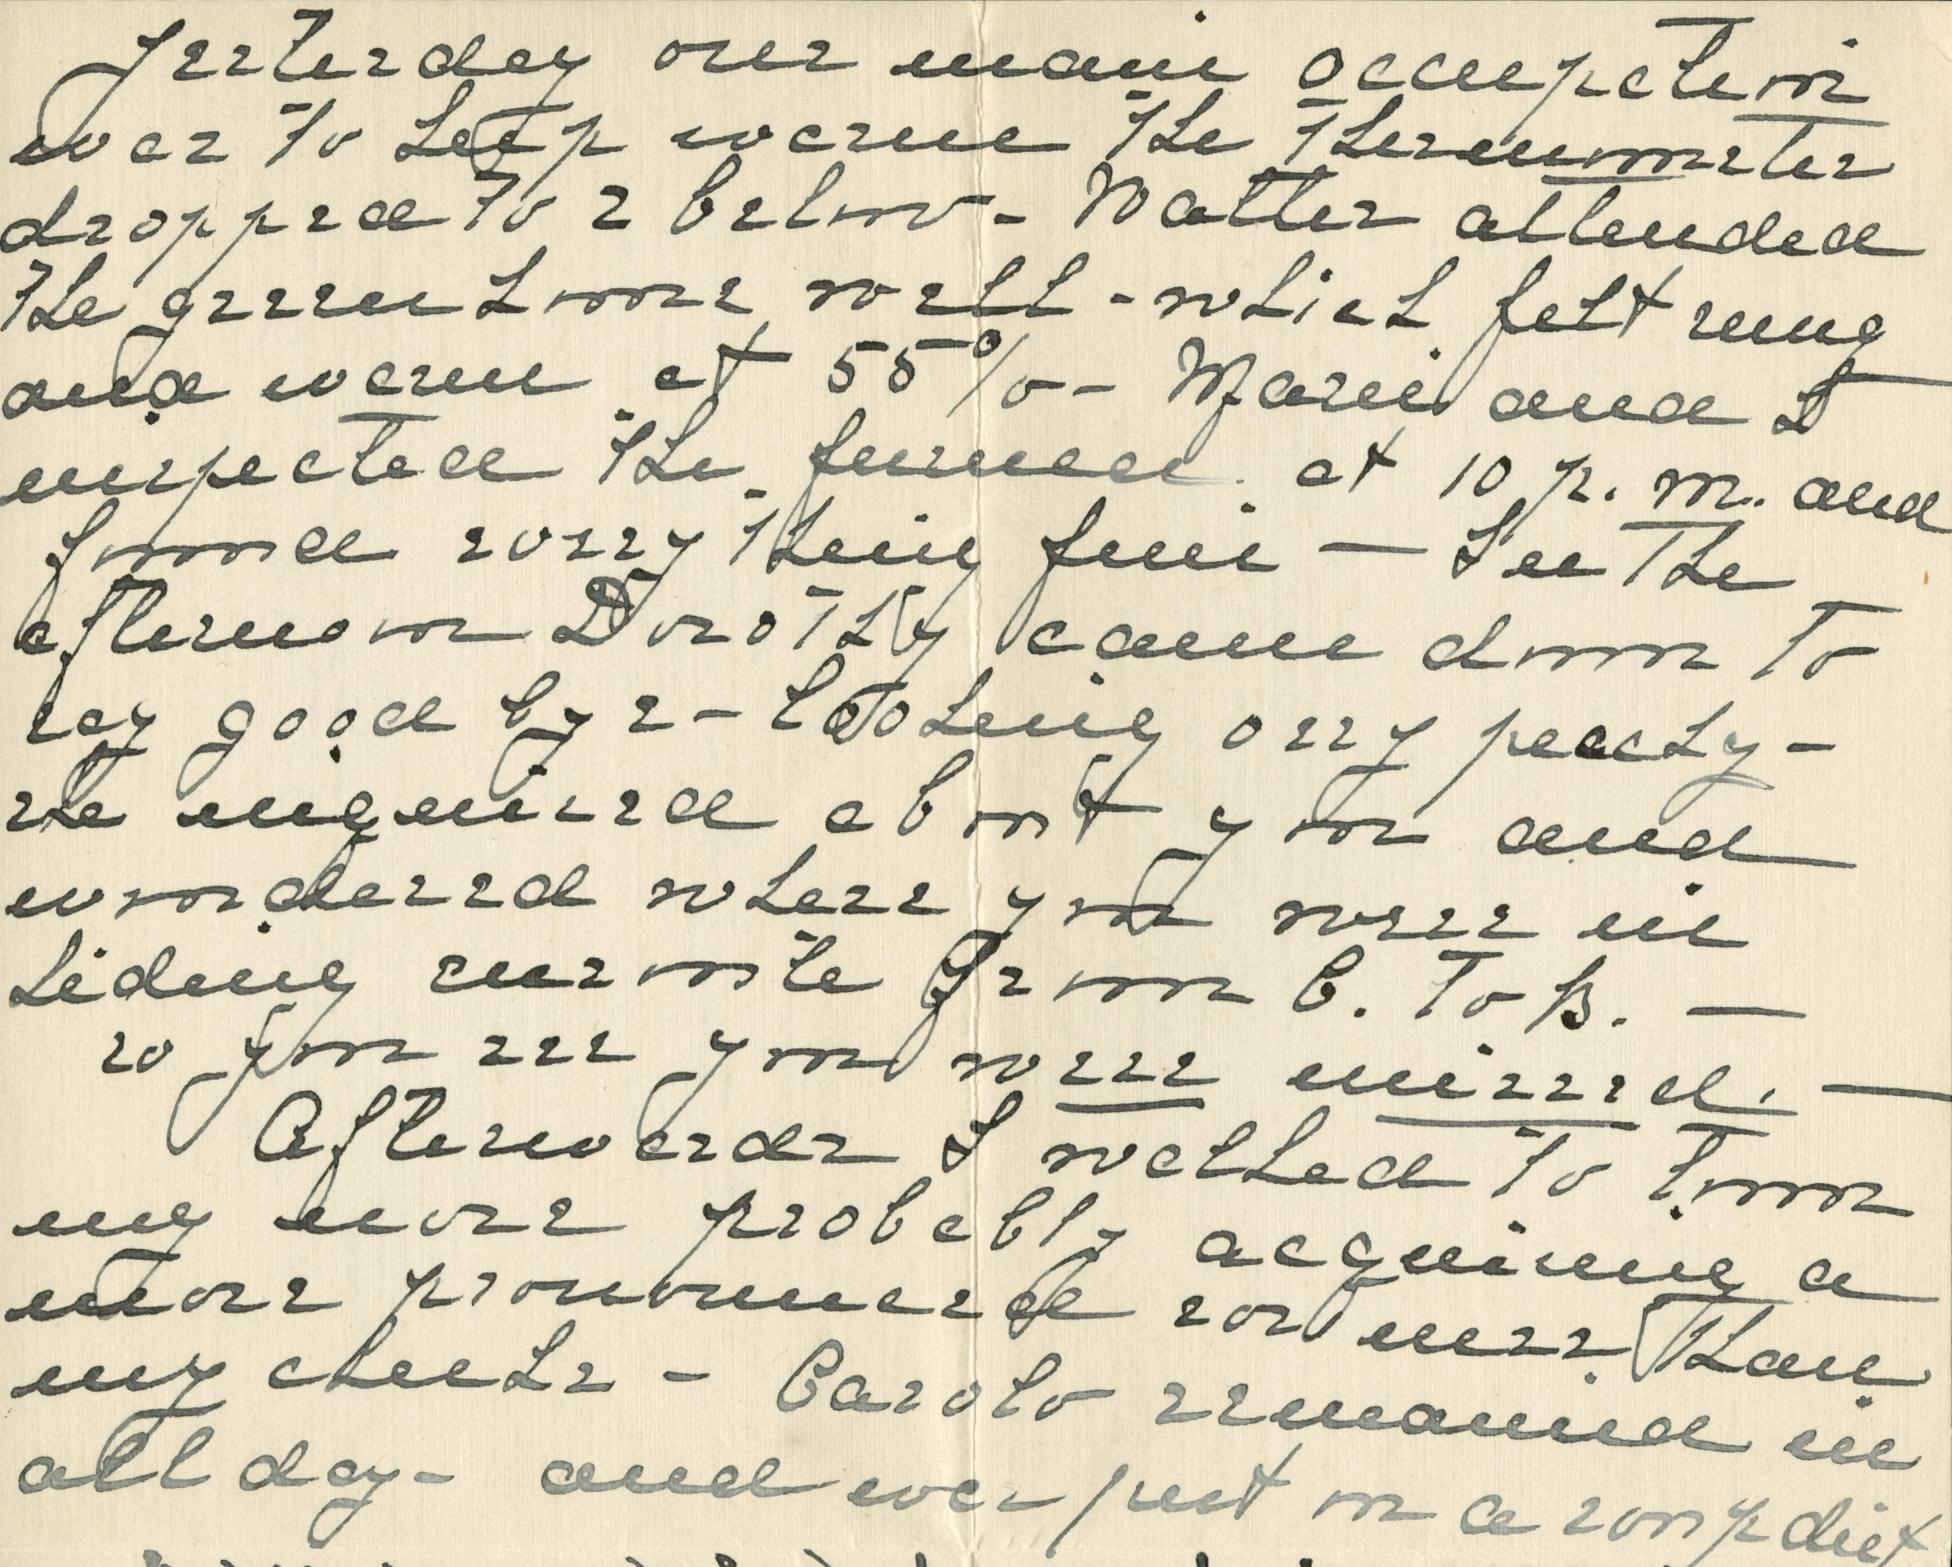 Yesterday our main occupation
was to keep warm the thermometer
dropped to 2 below - Walter attended
the greenhouse well - which felt snug
and warm at 55% - Marie and I
inspected the furnace at 10 p.m. and
found every thing fine — In the
afternoon Dorothy came down to
say good bye - looking very peaky -
she enquired about you and
wondered where you were in
hiding enroute from C. to B. —
so you see you were missed. —
Afterwards I walked to town
my nose probably acquiring a
more pronounced rosiness than
my cheeks - Carolo remained in
all day - and was put on a soup diet